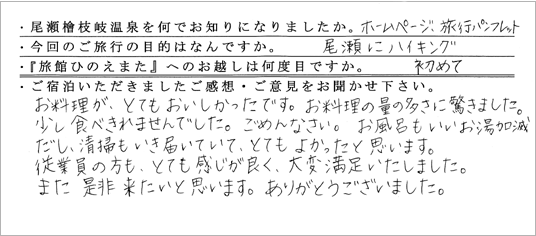 ・尾瀬檜枝岐温泉を何でお知りになりましたか。ホームページ、旅行パンフレット
・今回のご旅行の目的はなんですか。 尾瀬にハイキング
・『旅館ひのえまた』へのお越しは何度目ですか。 初めて
・ご宿泊いただきましたご感想・ご意見をお聞かせ下さい。
お料理が、とてもおいしかったです。お料理の量の多さに驚きました。
少し食べきれませんでした。ごめんなさい。お風呂もいいお湯加減
だし、清掃もいき届いていて、とてもよかったと思います。
従業員の方も、とても感じが良く、大変満足いたしました。
また是非来たいと思います。ありがとうございました。